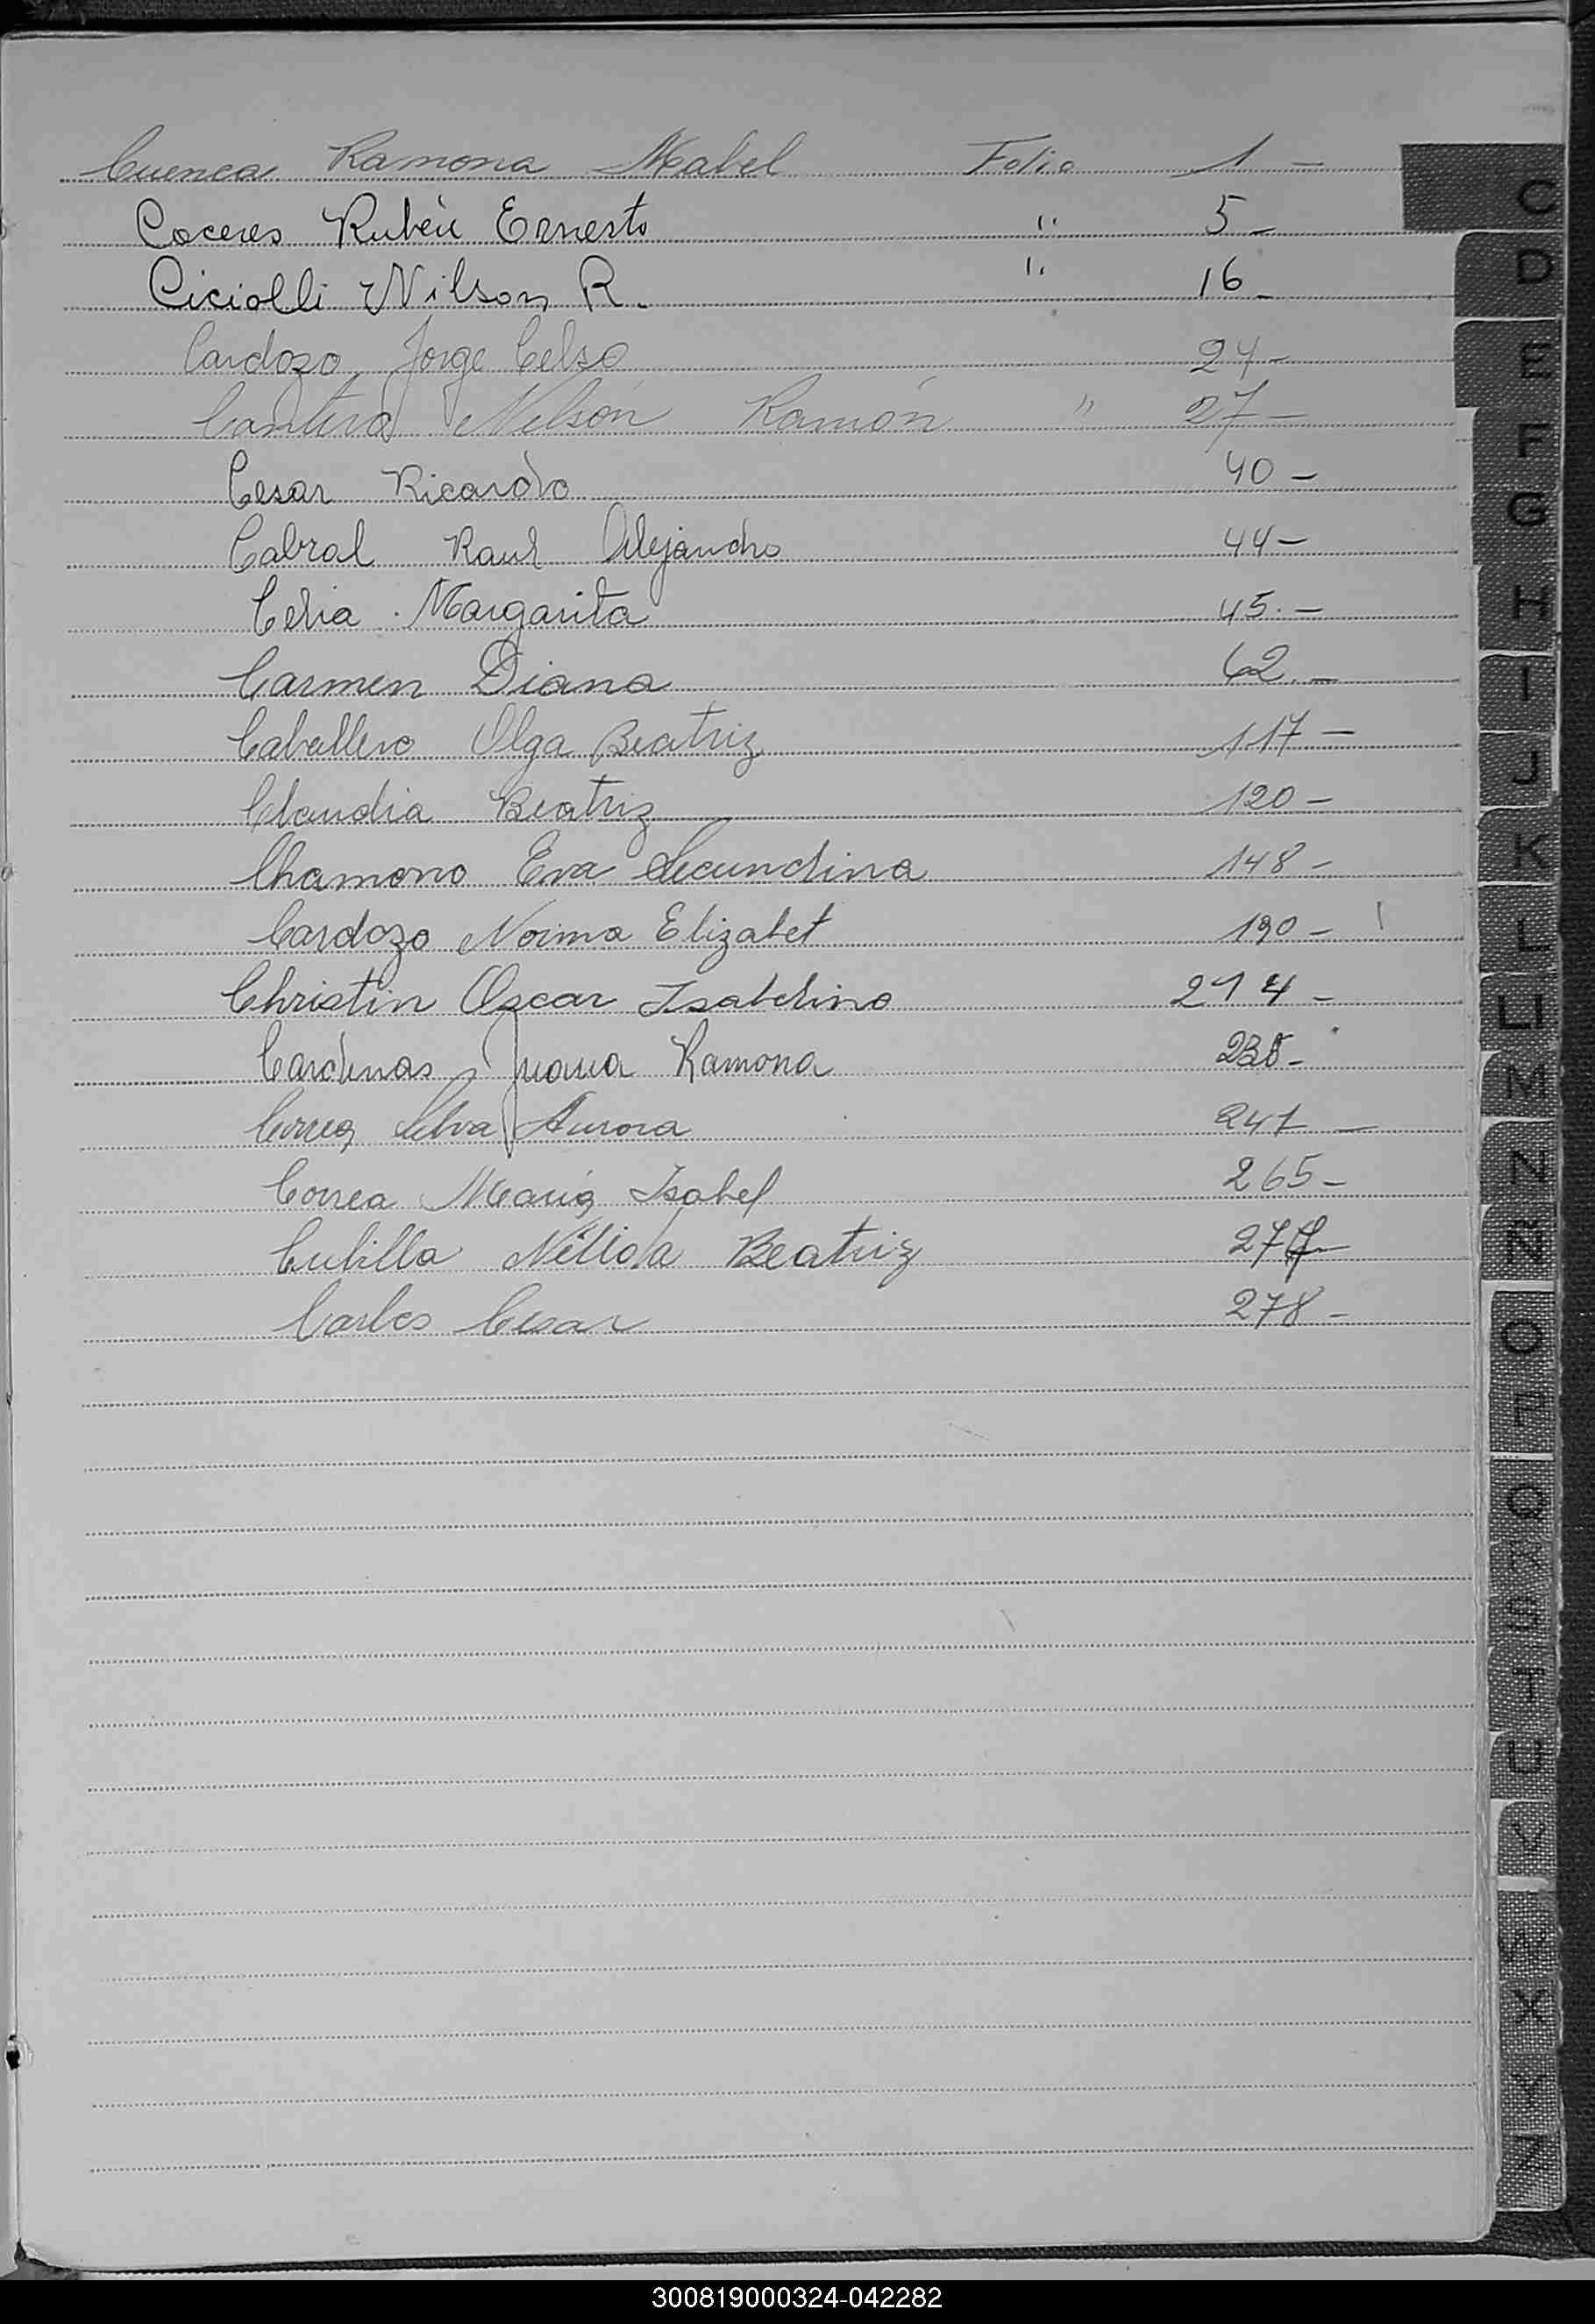 Cuenca Ramona Mabel Folio 1 -
Coceres Rubén Ernesto " 5 -
Ciciolli Nilson R. " 16 -
Cardozo Jorge Celso 24 -
Cantero Nelson Ramón " 27 -
Cesar Ricardo 40 -
Cabral Raul Alejandro 44 -
Celia Margarita 45. -
Carmen Diana 62. -
Caballero Olga Beatriz 117 -
Claudia Beatriz 120 -
Chamorro Eva Secundina 148 -
Cardozo Norma Elizabet 190 -
Christin Oscar Isabelino 214 -
Cardenas Juana Ramona
Correa Selva Aurora 241 -
Correa María Isabel 265 -
Cubilla Nélida Beatriz
Carlos Cesar 278 -
C
D
E
F
G
H
I
J
K
L
LL
M
N
Ñ
O
P
Q
R
S
T
U
V
W
X
Y
Z
300819000324-042282